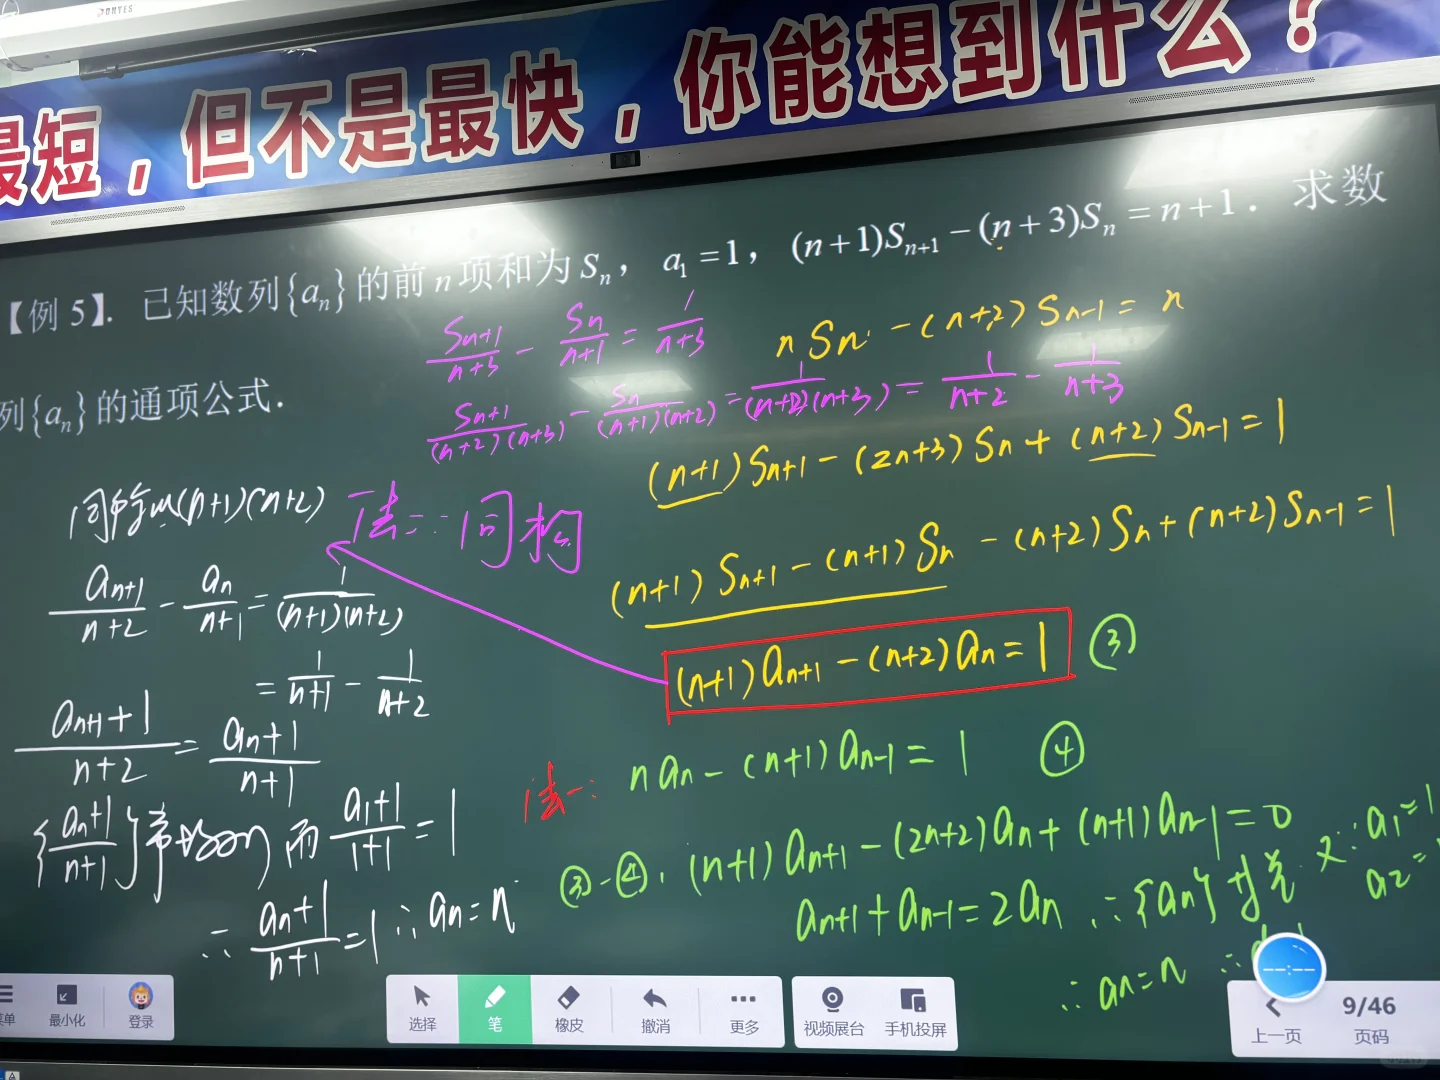 DONYES
最短，但不是最快，你能想到什么？
【例 5】. 已知数列{aₙ}的前 n 项和为 Sₙ， a₁ = 1， (n+1)Sₙ₊₁ − (n+3)Sₙ = n+1. 求数
列{aₙ}的通项公式.
Sₙ₊₁/(n+3) − Sₙ/(n+1) = 1/(n+3)
Sₙ₊₁/((n+2)(n+3)) − Sₙ/((n+1)(n+2)) = 1/((n+2)(n+3)) = 1/(n+2) − 1/(n+3)
n Sₙ − (n+2) Sₙ₋₁ = n
(n+1) Sₙ₊₁ − (2n+3) Sₙ + (n+2) Sₙ₋₁ = 1
(n+1) Sₙ₊₁ − (n+1) Sₙ − (n+2) Sₙ + (n+2) Sₙ₋₁ = 1
(n+1) aₙ₊₁ − (n+2) aₙ = 1 ③
法二: 同构
同除以(n+1)(n+2)
aₙ₊₁/(n+2) − aₙ/(n+1) = 1/((n+1)(n+2))
= 1/(n+1) − 1/(n+2)
(aₙ₊₁+1)/(n+2) = (aₙ+1)/(n+1)
{(aₙ+1)/(n+1)} 常数列 而 (a₁+1)/(1+1) = 1
∴ (aₙ+1)/(n+1) = 1 ∴ aₙ = n
法一: n aₙ − (n+1) aₙ₋₁ = 1 ④
③-④, (n+1) aₙ₊₁ − (2n+2) aₙ + (n+1) aₙ₋₁ = 0
aₙ₊₁ + aₙ₋₁ = 2aₙ ∴ {aₙ} 又∵ a₁ = 1
a₂ =
∴ aₙ = n ∴
菜单
最小化
登录
选择
笔
橡皮
撤消
更多
视频展台
手机投屏
上一页
9/46
页码